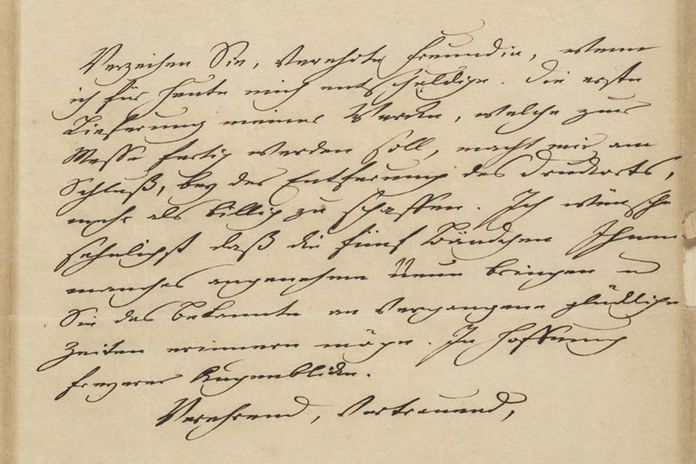 Verzeihen Sie, verehrte Freundin, wenn
ich für heute mich entschuldige. Die erste
Lieferung meiner Werke, welche zur
Messe fertig werden soll, macht mir am
Schluß, bey der Entfernung des Druckorts,
mehr als billig zu schaffen. Ich wünsche
sehnlichst daß die fünf Bändchen Ihnen
manches angenehme Neue bringen u
Sie das Bekannte an vergangene glückliche
Zeiten erinnern möge. In Hoffnung
freyerer Augenblicke.
Verehrend, vertrauend,